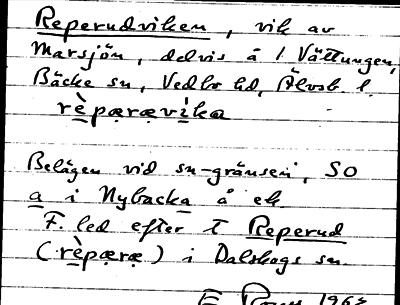 Reperudviken, vik av
Marsjön, delvis å l. Vättungen,
Bäcke sn, Vedbo hd, Älvsb. l.
rèpærævika
Belägen vid sn-gränsen, SO
a i Nybacka å ek.
F. led efter t Reperud
(rèpæræ) i Dalskogs sn
E 1965